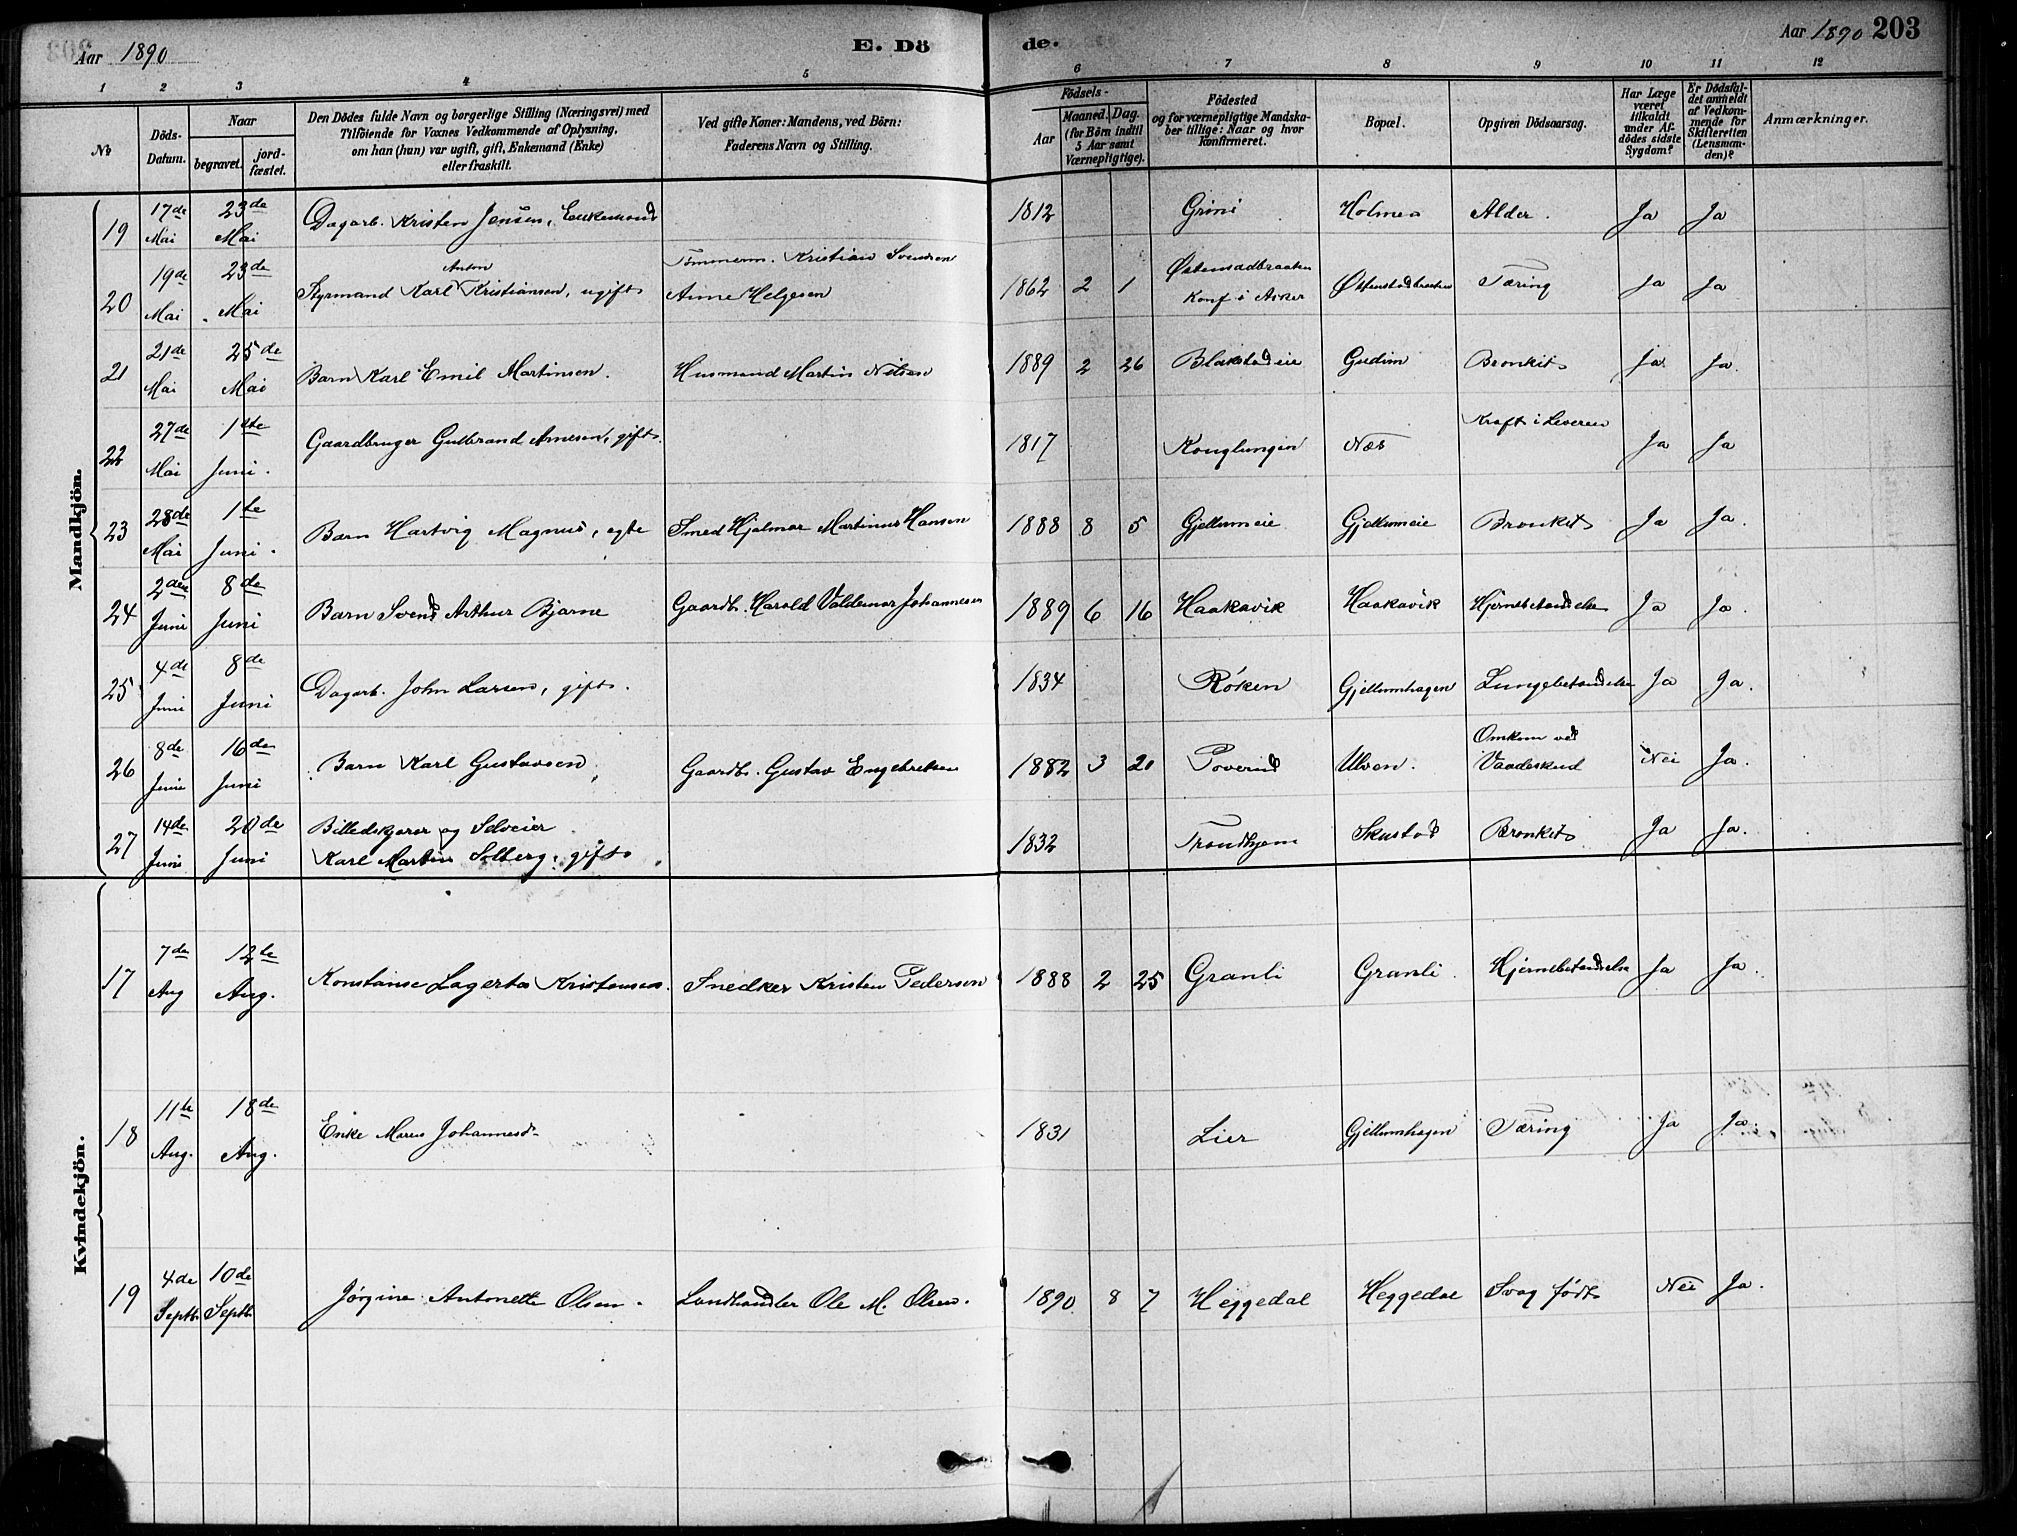 Aar 1890
E. Dö
de.
Aar 1890 203
1 2 3 4 5 6 7 8 9 10 11 12
№
Döds-Datum.
Naar
begravet.
jord-fæstet.
Den Dödes fulde Navn og borgerlige Stilling (Næringsvei) med
Tilföiende for Voxnes Vedkommende af Oplysning,
om han (hun) var ugift, gift, Enkemand (Enke)
eller fraskilt.
Ved gifte Koner: Mandens, ved Börn:
Faderens Navn og Stilling.
Födsels-
Aar
Maaned. Dag.
(for Börn indtil
5 Aar samt
Værnepligtige).
Födested
og for værnepligtige Mandska-
ber tillige: Naar og hvor
konfirmeret.
Bopæl.
Opgiven Dödsaarsag.
Har Læge
været
tilkaldt
under Af-
dödes sidste
Sygdom?
Er Dödsfal-
det anmeldt
af Vedkom-
mende for
Skifteretten
(Lensman-
den)?
Anmærkninger.
Mandkjön.
19 17de Mai 23de Mai Dagarb. Kristen Jensen, Enkemand 1812 Grini Holmen Alder. Ja Ja
20 19de Mai 23de Mai Styrmand Karl Anton Kristiansen, ugift Tömmerm. Kristian Svendsen
Anne Helgesen 1862 2 1 Østensadbraaten
Konf i Asker Østenstadbraaten Tæring Ja Ja
21 21de Mai 25de Mai Barn Karl Emil Martinsen. Husmand Martin Nilsen 1889 2 26 Blakstadeie Gudim Bronkit Ja Ja.
22 27de Mai 1ste Juni. Gaardbruger Gulbrand Arnesen, gift. 1817 Konglungen Næs Kræft i Leveren Ja Ja
23 28de Mai 1ste Juni. Barn Hartvig Magnus, egte Smed Hjalmar Martinus Hansen 1888 8 5 Gjellumeie Gjellumeie Bronkit Ja Ja.
24 2den Juni 8de Juni Barn Svend Arthur Bjarne Gaardb. Harald Valdemar Johannesen 1889 6 16 Haakavik Haakavik Hjernebetændelse Ja Ja.
25 4de Juni 8de Juni Dagarb. John Larsen, gift. 1834 Röken Gjellumhagen Lungebetændelse Ja Ja.
26 8de Juni 16de Juni Barn Karl Gustavsen Gaardb. Gustav Engebretsen 1882 3 21 Poverud Ulven. Omkom ved
Vaadeskud Nei Ja.
27 14de Juni 20de Juni Billedskjærer og Selveier
Karl Martin Solberg, gift. 1832 Trondhjem Skustad Bronkit Ja Ja.
Kvindekjön.
17 7de Aug 12te Aug. Konstanse Lagerta Kristensen. Snedker Kristen Pedersen 1888 2 25 Granli Granli. Hjernebetændelse Ja Ja.
18 11te Aug. 18de Aug. Enke Maren Johannesd. 1831 Lier Gjellumhagen Tæring Ja Ja.
19 4de Septb. 10de Septb. Jörgine Antonette Olsen. Landhandler Ole M. Olsen. 1890. 8 7 Heggedal Heggedal Svag födt Nei Ja.